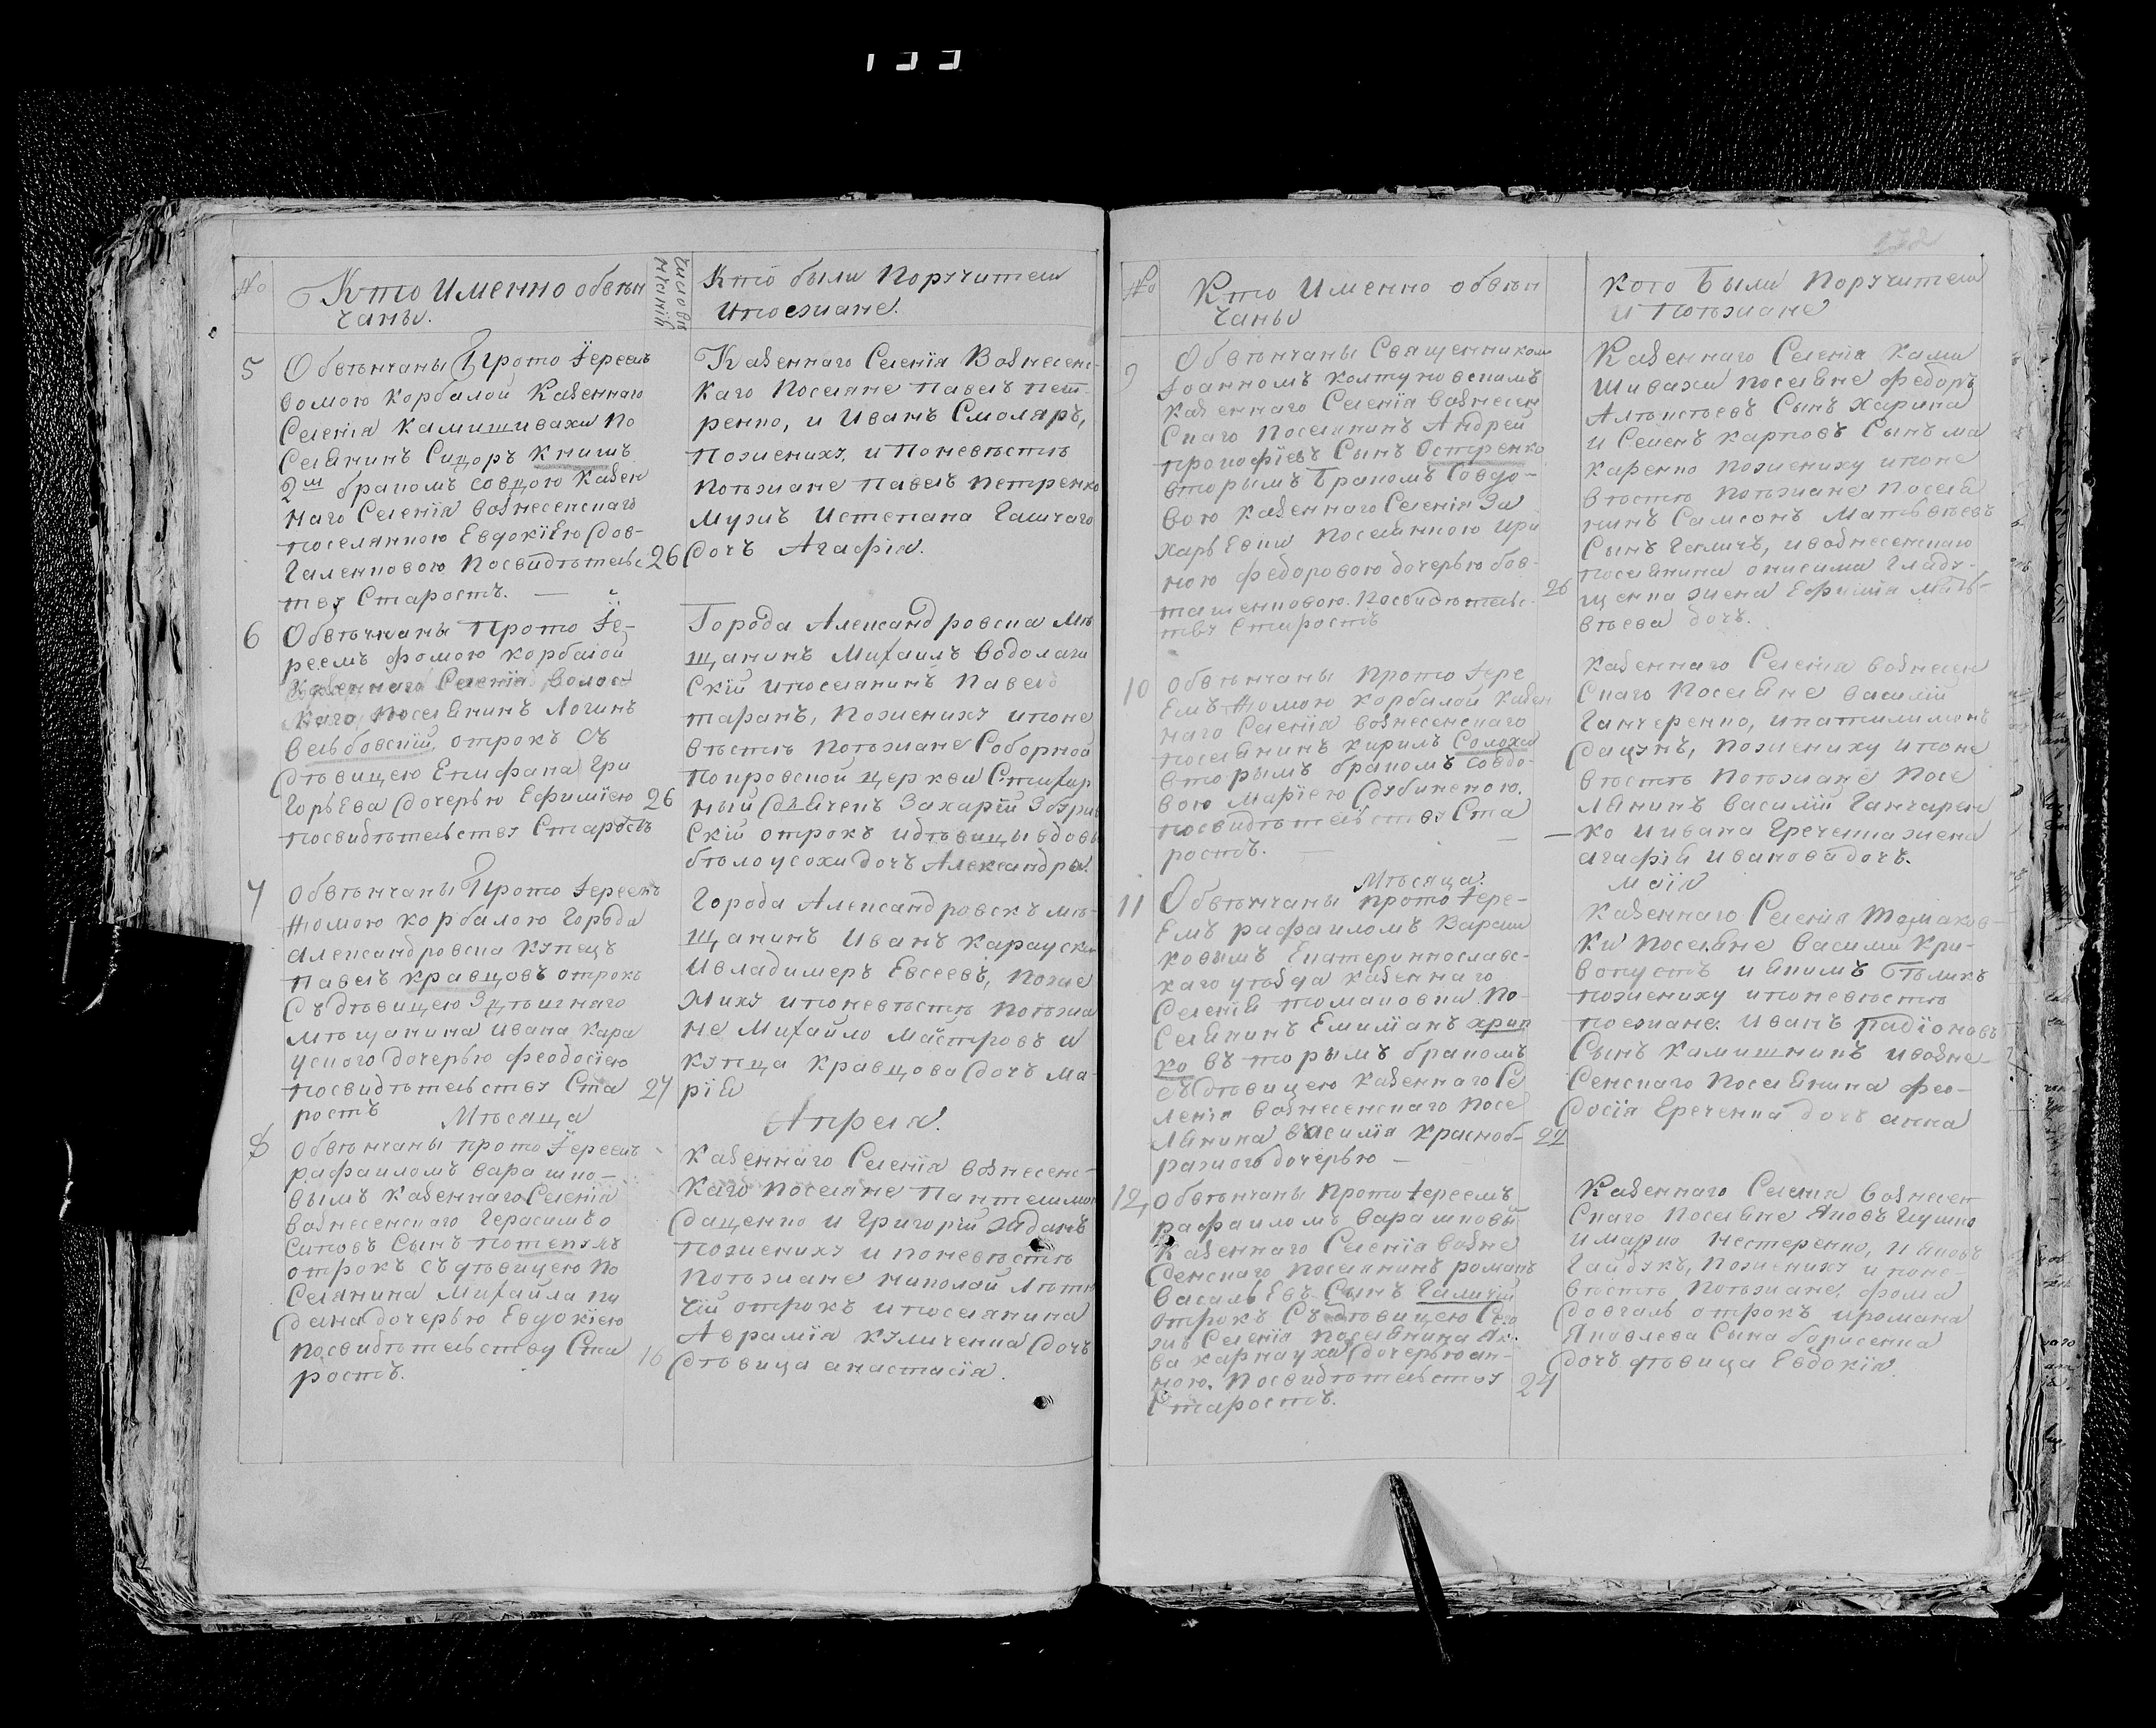 133
№
Кто Именно обвѣн
чаны.
Число вѣ
нчаній
Кто были Поручители
и поезжане.
5
Обвѣнчаны Прото Іереемъ
Фомою Корбалой Казеннаго
Селенія Камишивахи По
Селянинъ Сидоръ Книшъ
2м бракомъ совдовою Казен
наго Селенія Вознесенскаго
поселянкою Евдокіею Дов
галенковою Посвидѣтельс
тву Старостъ.
26
Казеннаго Селенія Вознесенс
каго Поселяне Павелъ Пет
ренко, и Иванъ Смоляръ,
Пожениху, и Поневѣстѣ
Поѣзжане Павелъ Петренко
Мужъ и Степана Галичаго
Дочь Агафія.
6
Обвѣнчаны Прото Іе-
реемъ Фомою Корбалой
Казеннаго Селенія
Поселянинъ Логинъ
Вельбовскій, отрокъ Съ
Дѣвицею Епифана Гри
горьева Дочерью Ефиміею
посвидѣтельству Старостъ
26
Города Александровска Мѣ
щанинъ Михаилъ Водолаги
Скій и поселянинъ Павелъ
таранъ, Пожениху и поне
вѣстѣ Поѣзжане Соборной
Покровской церкви Стихар
ный Дьячекъ Захарій
Скій отрокъ и дѣвицы вдовы
бѣлоусохи дочь Александра.
7
Обвѣнчаны Прото Іереемъ
Фомою Корбалою Города
Александровска Купецъ
Павелъ Кравцовъ отрокъ
Съ дѣвицею Здѣшняго
мѣщанина Ивана Кара
уского дочерью Феодосіею
посвидѣтельству Ста
ростъ
27
Города Александровскъ мѣ-
щанинъ Иванъ Карауски
и владимеръ Евсеевъ, Поже
ниху и поневѣстѣ Поѣзжа
не Михайло Майстровъ и
Купца Кравцова Дочь Ма-
рія
Мѣсяца
Апреля.
8
Обвѣнчаны прото Іереемъ
рафаиломъ Варашко-
вымъ Казеннаго Селенія
Вознесенскаго Герасимъ о
сиповъ Сынъ
отрокъ Съ дѣвицею По
Селянина Михайла
дочерью Евдокіею
Посвидѣтельству Ста
ростъ.
16
Казеннаго Селенія Вознесенс-
каго Поселяне Пантелимон
Даценко и Григорій
Пожениху и поневѣстѣ
Поѣзжане Николай
чій отрокъ и поселянина
Аврамія Куличенка Дочь
Дѣвица анастасія.
№
Кто Именно обвѣн
чаны
Кого Были Поручители
и Поѣзжане
9
Обвѣнчаны Священникомъ
Іоанномъ Колтуновскимъ
Казеннаго Селенія Вознесен
Скаго Поселянинъ Андрей
прокофіевъ Сынъ Остренко
вторымъ Бракомъ Совдо-
вою Казеннаго Селенія За
харьевки Поселянкою Ири
ною федоровою дочерью бов-
ташенковою. Посвидѣтельс-
тву Старостъ
26
Казеннаго Селенія Ками
шивахи поселяне Федоръ
Алексѣевъ Сынъ Харина
и Семенъ Карповъ Сынъ Ма
каренко пожениху и поне
вѣстѣ Поѣзжане Поселя
нинъ Самсонъ Матвѣевъ
Сынъ Галичъ, и вознесенскаго
поселянина онисима Гладу-
щенка жена Ефимія Мать-
вѣева дочь.
10
Обвѣнчаны Прото Іере
емъ Фомою Корбалой Казен
наго Селенія Вознесенскаго
поселянинъ Кирилъ Солоха
вторымъ бракомъ Совдо-
вою Маріею Дубиненою.
посвидѣтельству Ста
ростъ.
Казеннаго Селенія Вознесен
Скаго Поселяне Василій
Ганчеренко, и пателимонъ
Дацунъ, Пожениху и поне
вѣстѣ Поѣзжане Посе
лянинъ Василій Ганчарен
ко и ивана Гречепа жена
агафія Иванова дочь.
Мѣсяца
маія
11
Обвѣнчаны прото Іере-
емъ рафаиломъ Вараш
ковымъ Екатеринославс-
каго уѣзда казеннаго
Селенія томаковки По-
Селянинъ Емиліанъ хрип
ко въторымъ бракомъ
Съдѣвицею Казеннаго Се
ленія Вознесенскаго Посе
лянина василія Красноб-
ражого дочерью —
22
Казеннаго Селенія Томаков-
ки Поселяне Василій Кри-
вопустъ и якимъ Бѣликъ
пожениху и поневѣстѣ
поезжане. Иванъ радіоновъ
Сынъ Камишникъ и возне-
Сенскаго Поселянина фео-
досія Ереченка дочь анна
12
Обвѣнчаны Прото Іереемъ
рафаиломъ Варашковы
Казеннаго Селенія Возне
Сенскаго Поселянинъ романъ
Васильевъ Сынъ Галичій
отрокъ Съ дѣвицею Сего
жъ Селенія Поселянина Як
ва карнауха Дочерью ан-
ною. Посвидѣтельству
Старостъ.
24
Казеннаго Селенія Вознесен
Скаго Поселяне Яковъ Глушко
и марко Нестеренко, и яковъ
Гайдукъ, Пожениху и поне-
вѣстѣ Поѣзжане, фома
Довгаль отрокъ и романа
Яковлева Сына борисенка
дочь дѣвица Евдокія.